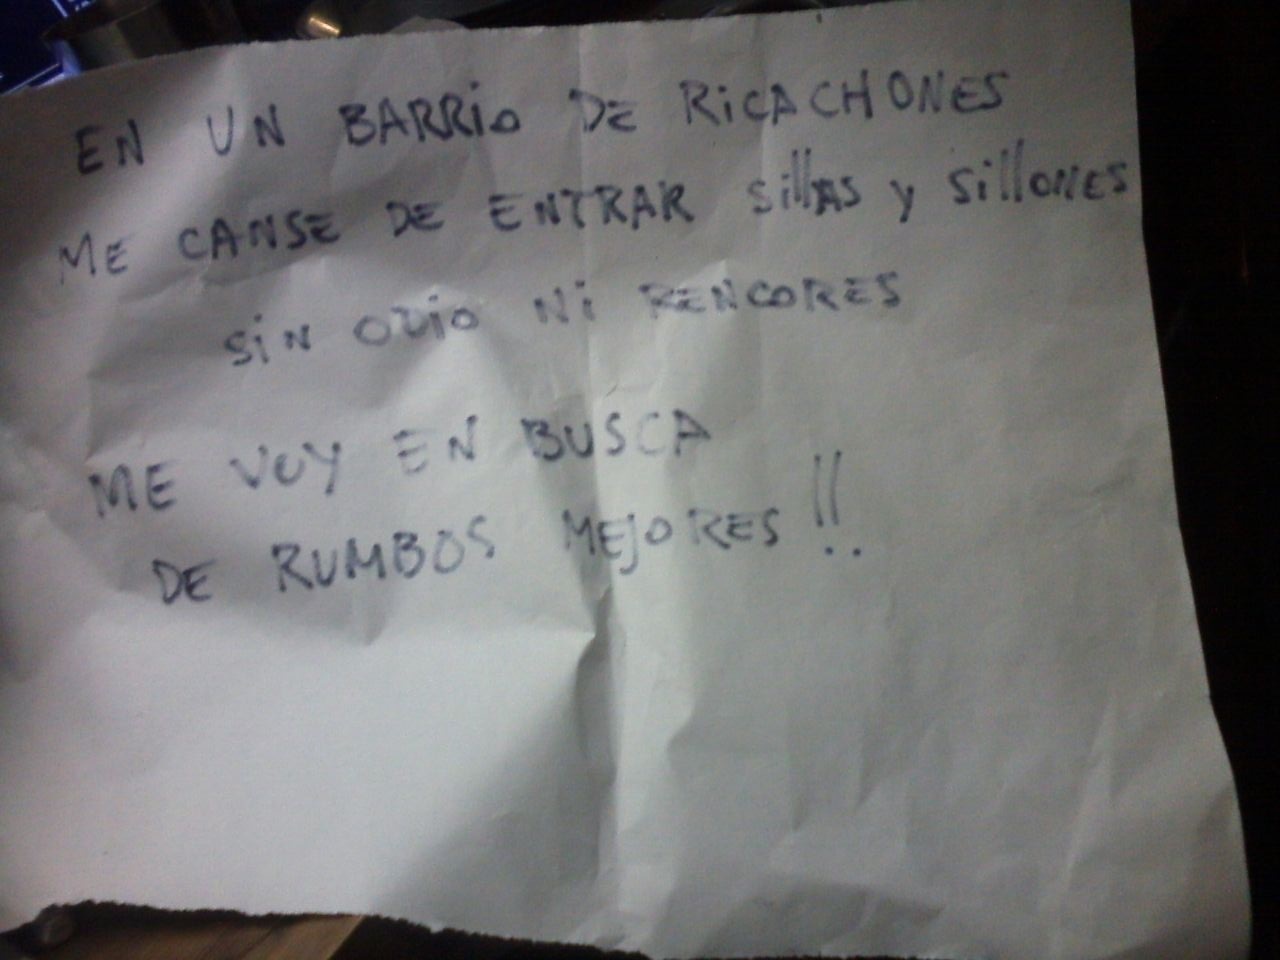 EN UN BARRiO DE RiCACHONES
ME CANSE DE ENTRAR SillAS y SillONES
SiN ODiO Ni RENCORES
ME VOY EN BUSCA
DE RUMBOS MEJORES!!